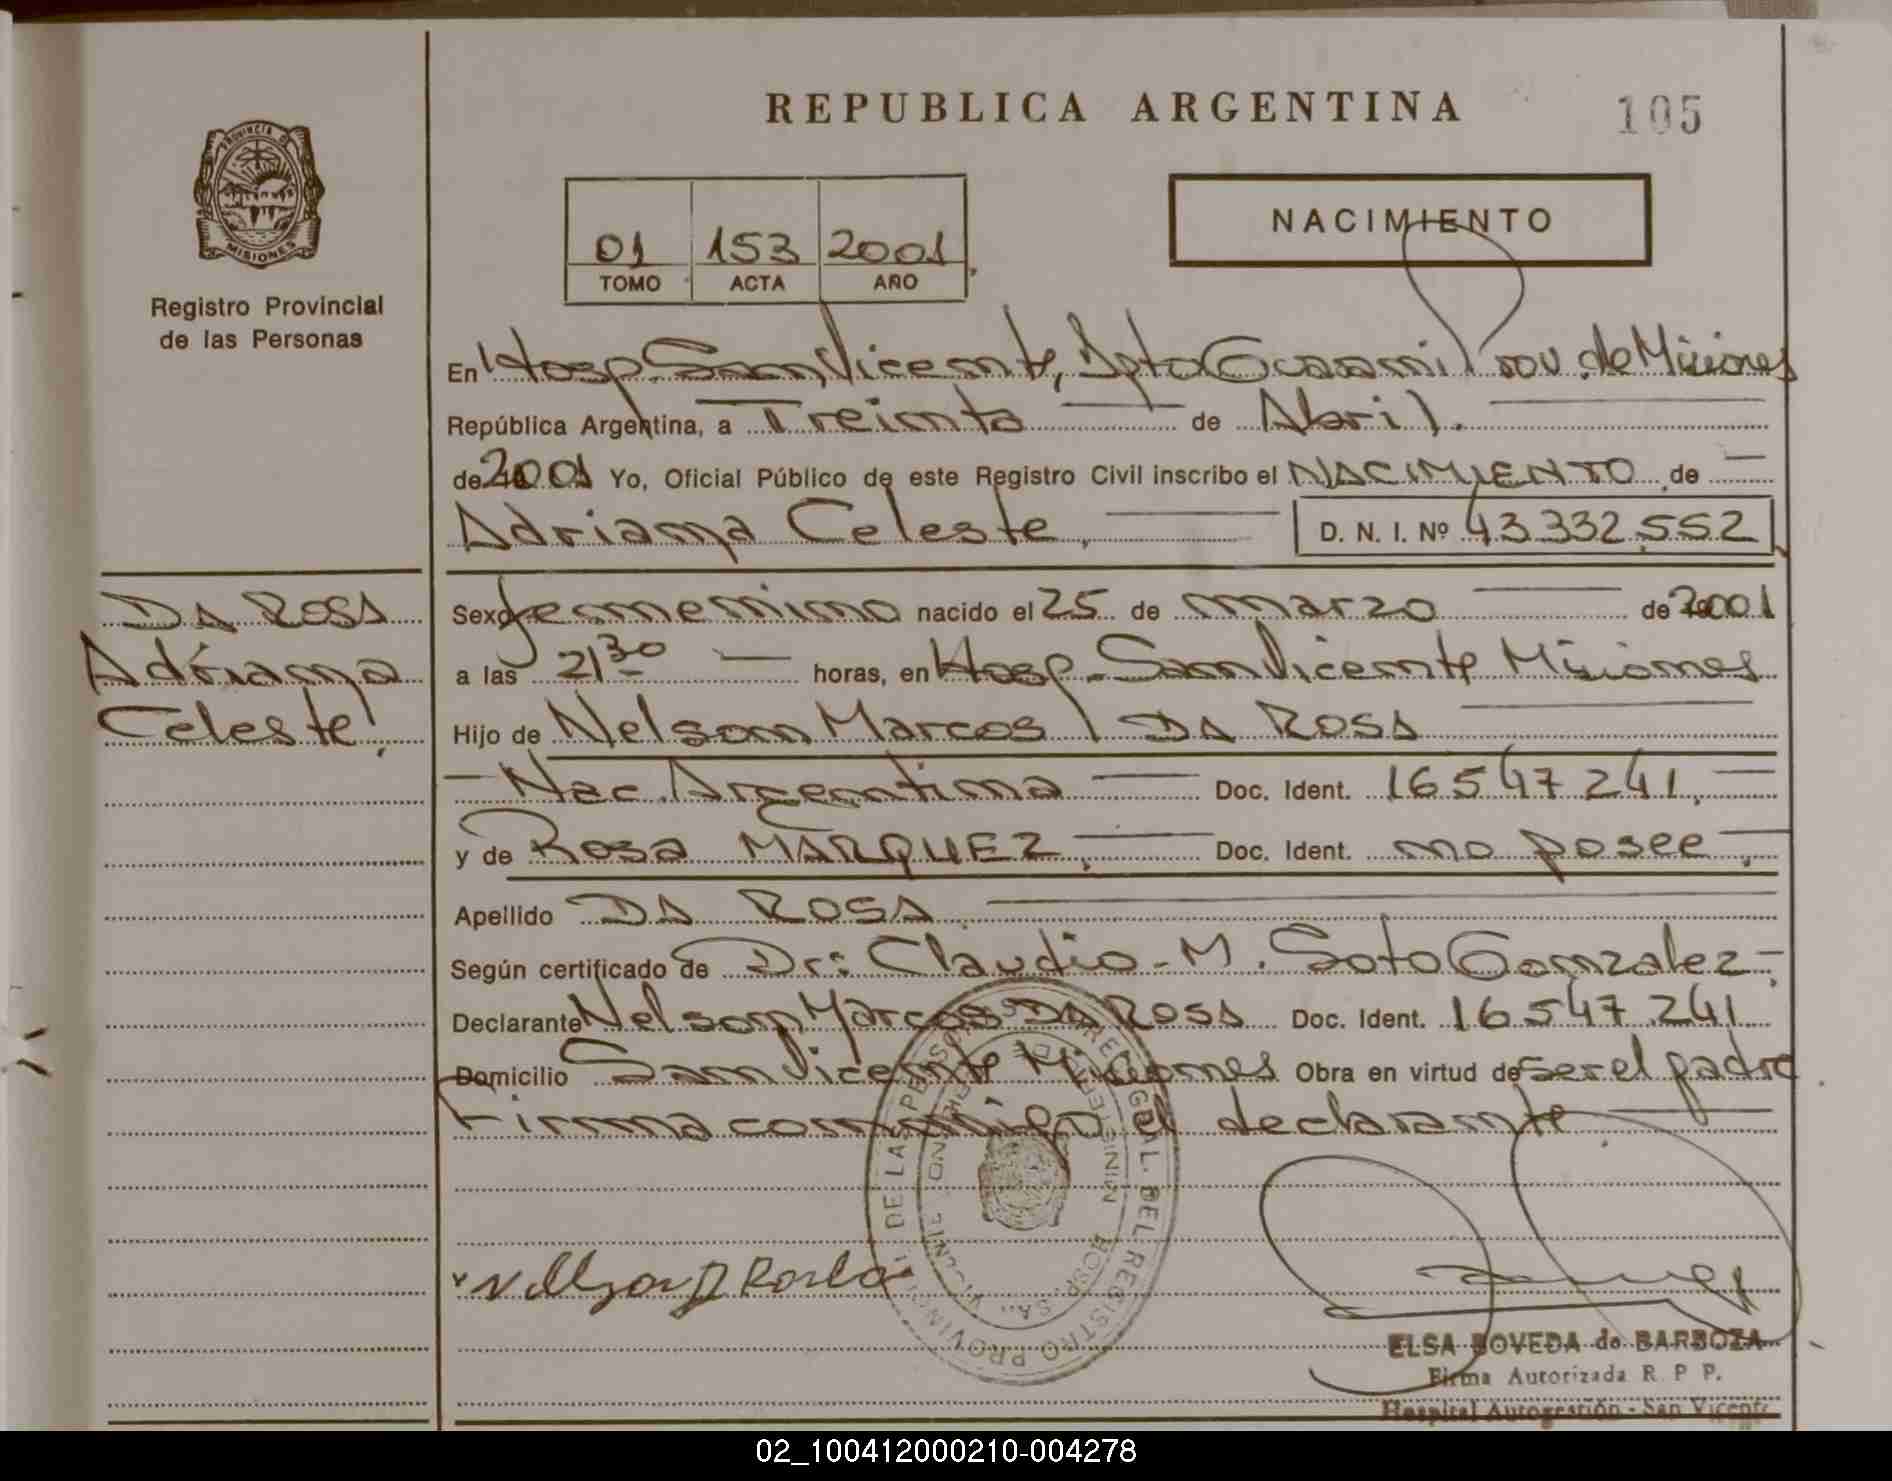 REPUBLICA ARGENTINA
105
PROVINCIA DE
MISIONES
Registro Provincial
de las Personas
01 153 2001
TOMO ACTA AÑO
NACIMIENTO
En Hosp. San Vicente, Dpto Guarani Prov. de Misiones
República Argentina, a Treinta de Abril.
de 2001 Yo, Oficial Público de este Registro Civil inscribo el NACIMIENTO de
Adriana Celeste. D. N. I. Nº 43.332.552
DA ROSA
Adriana
Celeste.
Sexo femenino nacido el 25 de marzo de 2001
a las 21 30 horas, en Hosp. San Vicente Misiones
Hijo de Nelson Marcos DA ROSA
Nac. Argentina Doc. Ident. 16.547.241.
y de Rosa MARQUEZ, Doc. Ident. no posee.
Apellido DA ROSA.
Según certificado de Dr: Claudio M. Soto Gonzalez
Declarante Nelson Marcos DA ROSA Doc. Ident. 16.547.241
Domicilio San Vicente Misiones Obra en virtud de ser el padre
Firma conmigo el declarante.
DEL REGISTRO PROVINCIAL DE LAS PERSONAS
HOSP. SAN VICENTE
ELSA BOVEDA de BARBOZA
Firma Autorizada R. P. P.
Hospital Autogestión - San Vicente
02_100412000210-004278